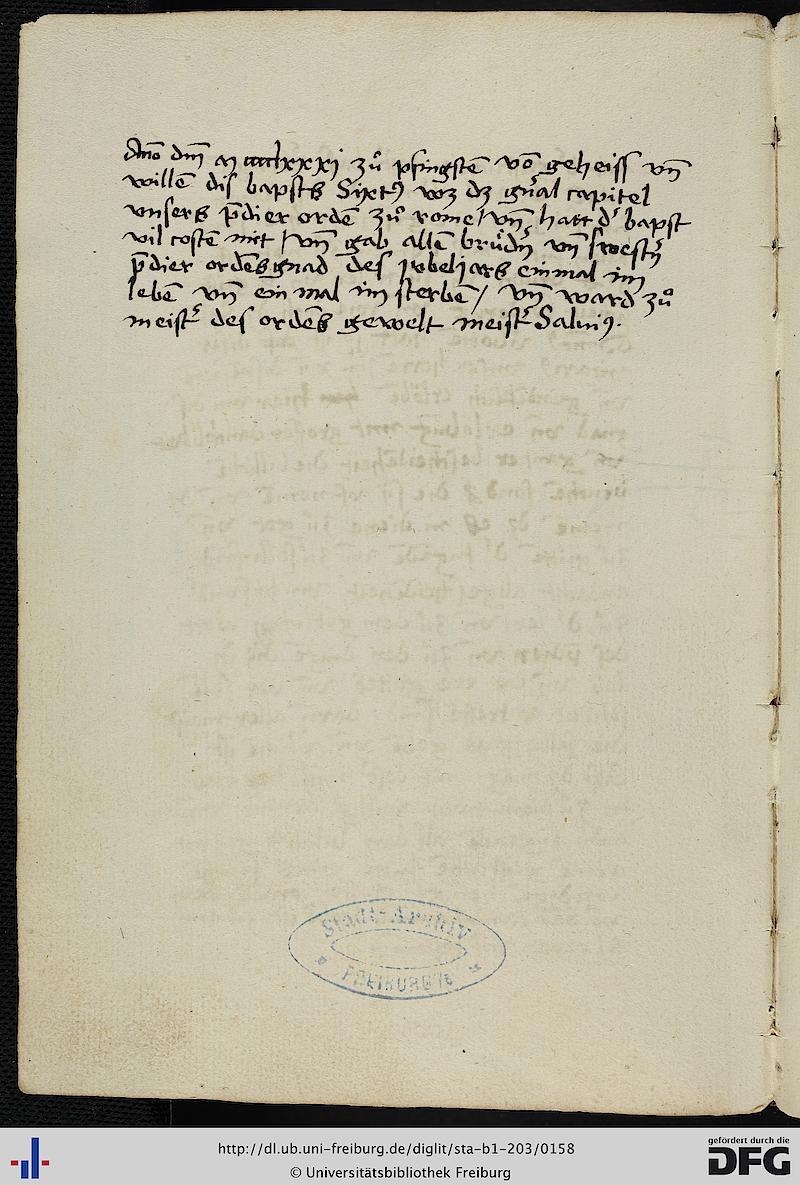 Anno dm̄ m cccclxxxj zů pfingstē vō geheiss vn̄
willē dis bapsts Sixtꝰ wz dz gn̄al capitel
vnsers p̄dier ordē zů rome / vn̄ hatt d' bapst
vil costē mit / vn̄ gab allē brůdn̄ vn̄ swestn̄
p̄dier ordēs gnad des jvbeljars ein mal im
lebē vn̄ ein mal im sterbē / vn̄ ward zů
meist' des ordēs gewelt meist' Saluꝰ.
Stadt-Archiv
FREIBURG i/B
http://dl.ub.uni-freiburg.de/diglit/sta-b1-203/0158
© Universitätsbibliothek Freiburg
gefördert durch die
DFG